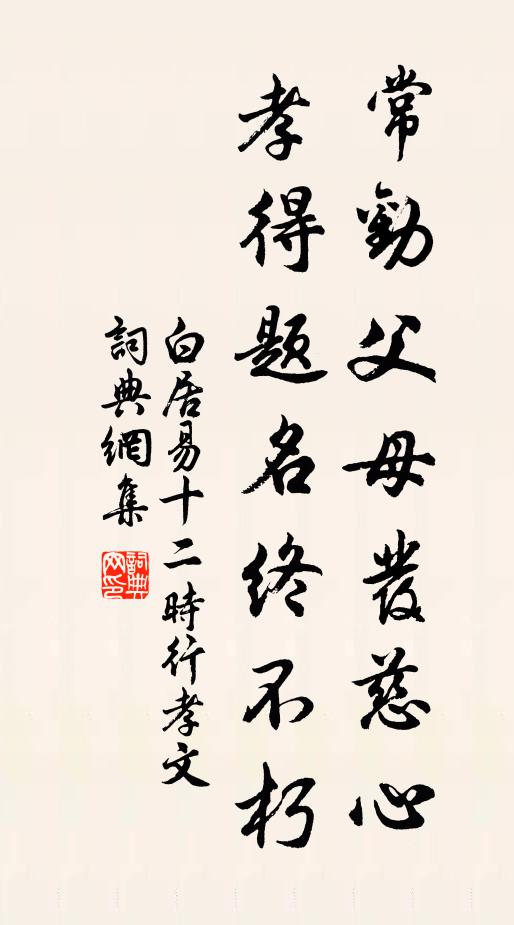 常勸父母發慈心
孝得題名終不朽
白居易十二時行孝文
詞典網集
詞典網印